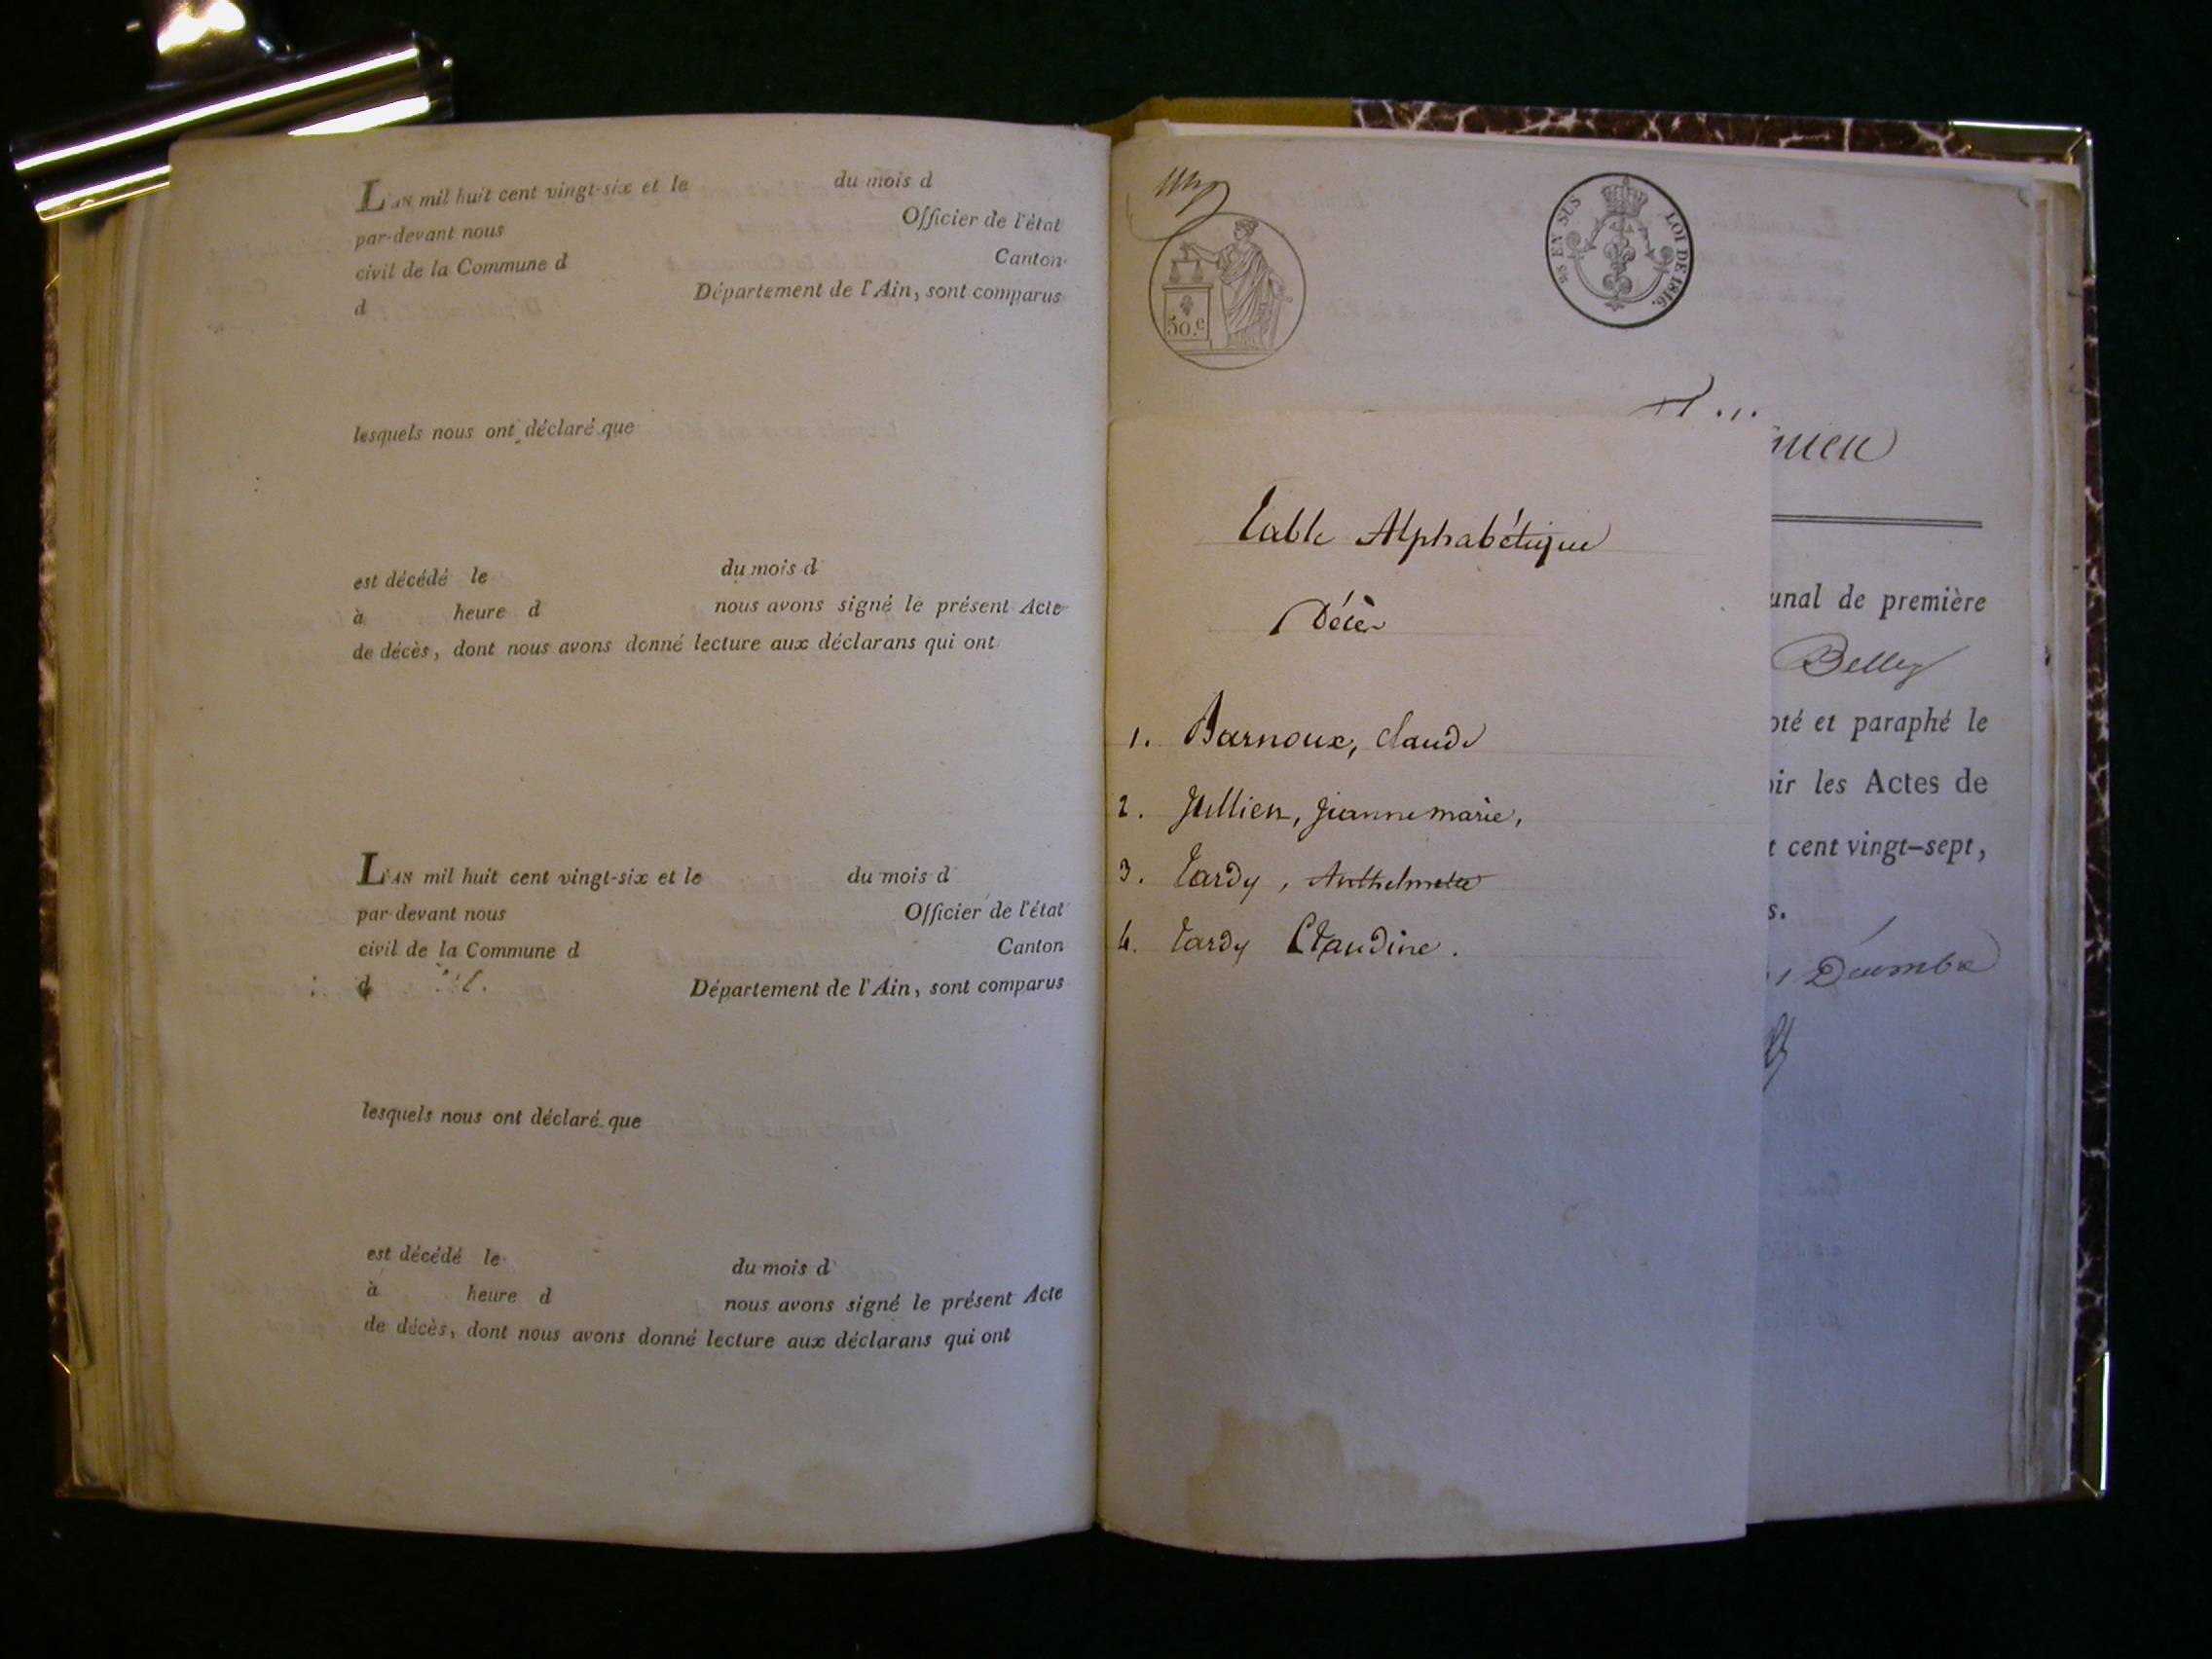 L'AN mil huit cent vingt-six et le du mois d
par-devant nous Officier de l'état
civil de la Commune d Canton
d Département de l'Ain, sont comparus
lesquels nous ont déclaré que
est décédé le du mois d
à heure d nous avons signé le présent Acte
de décès, dont nous avons donné lecture aux déclarans qui ont
L'AN mil huit cent vingt-six et le du mois d
par-devant nous Officier de l'état
civil de la Commune d Canton
d Département de l'Ain, sont comparus
lesquels nous ont déclaré que
est décédé le du mois d
à heure d nous avons signé le présent Acte
de décès, dont nous avons donné lecture aux déclarans qui ont
50.c
EN SUS LOI DE 1816.
Table Alphabétique
Décès
1. Barnoux, Claude
2. Jullien, Jeanne marie,
3. Tardy, Anthelmette
4. Tardy Claudine.
unal de première
Belley
oté et paraphé le
oir les Actes de
t cent vingt-sept,
s.
Décembre